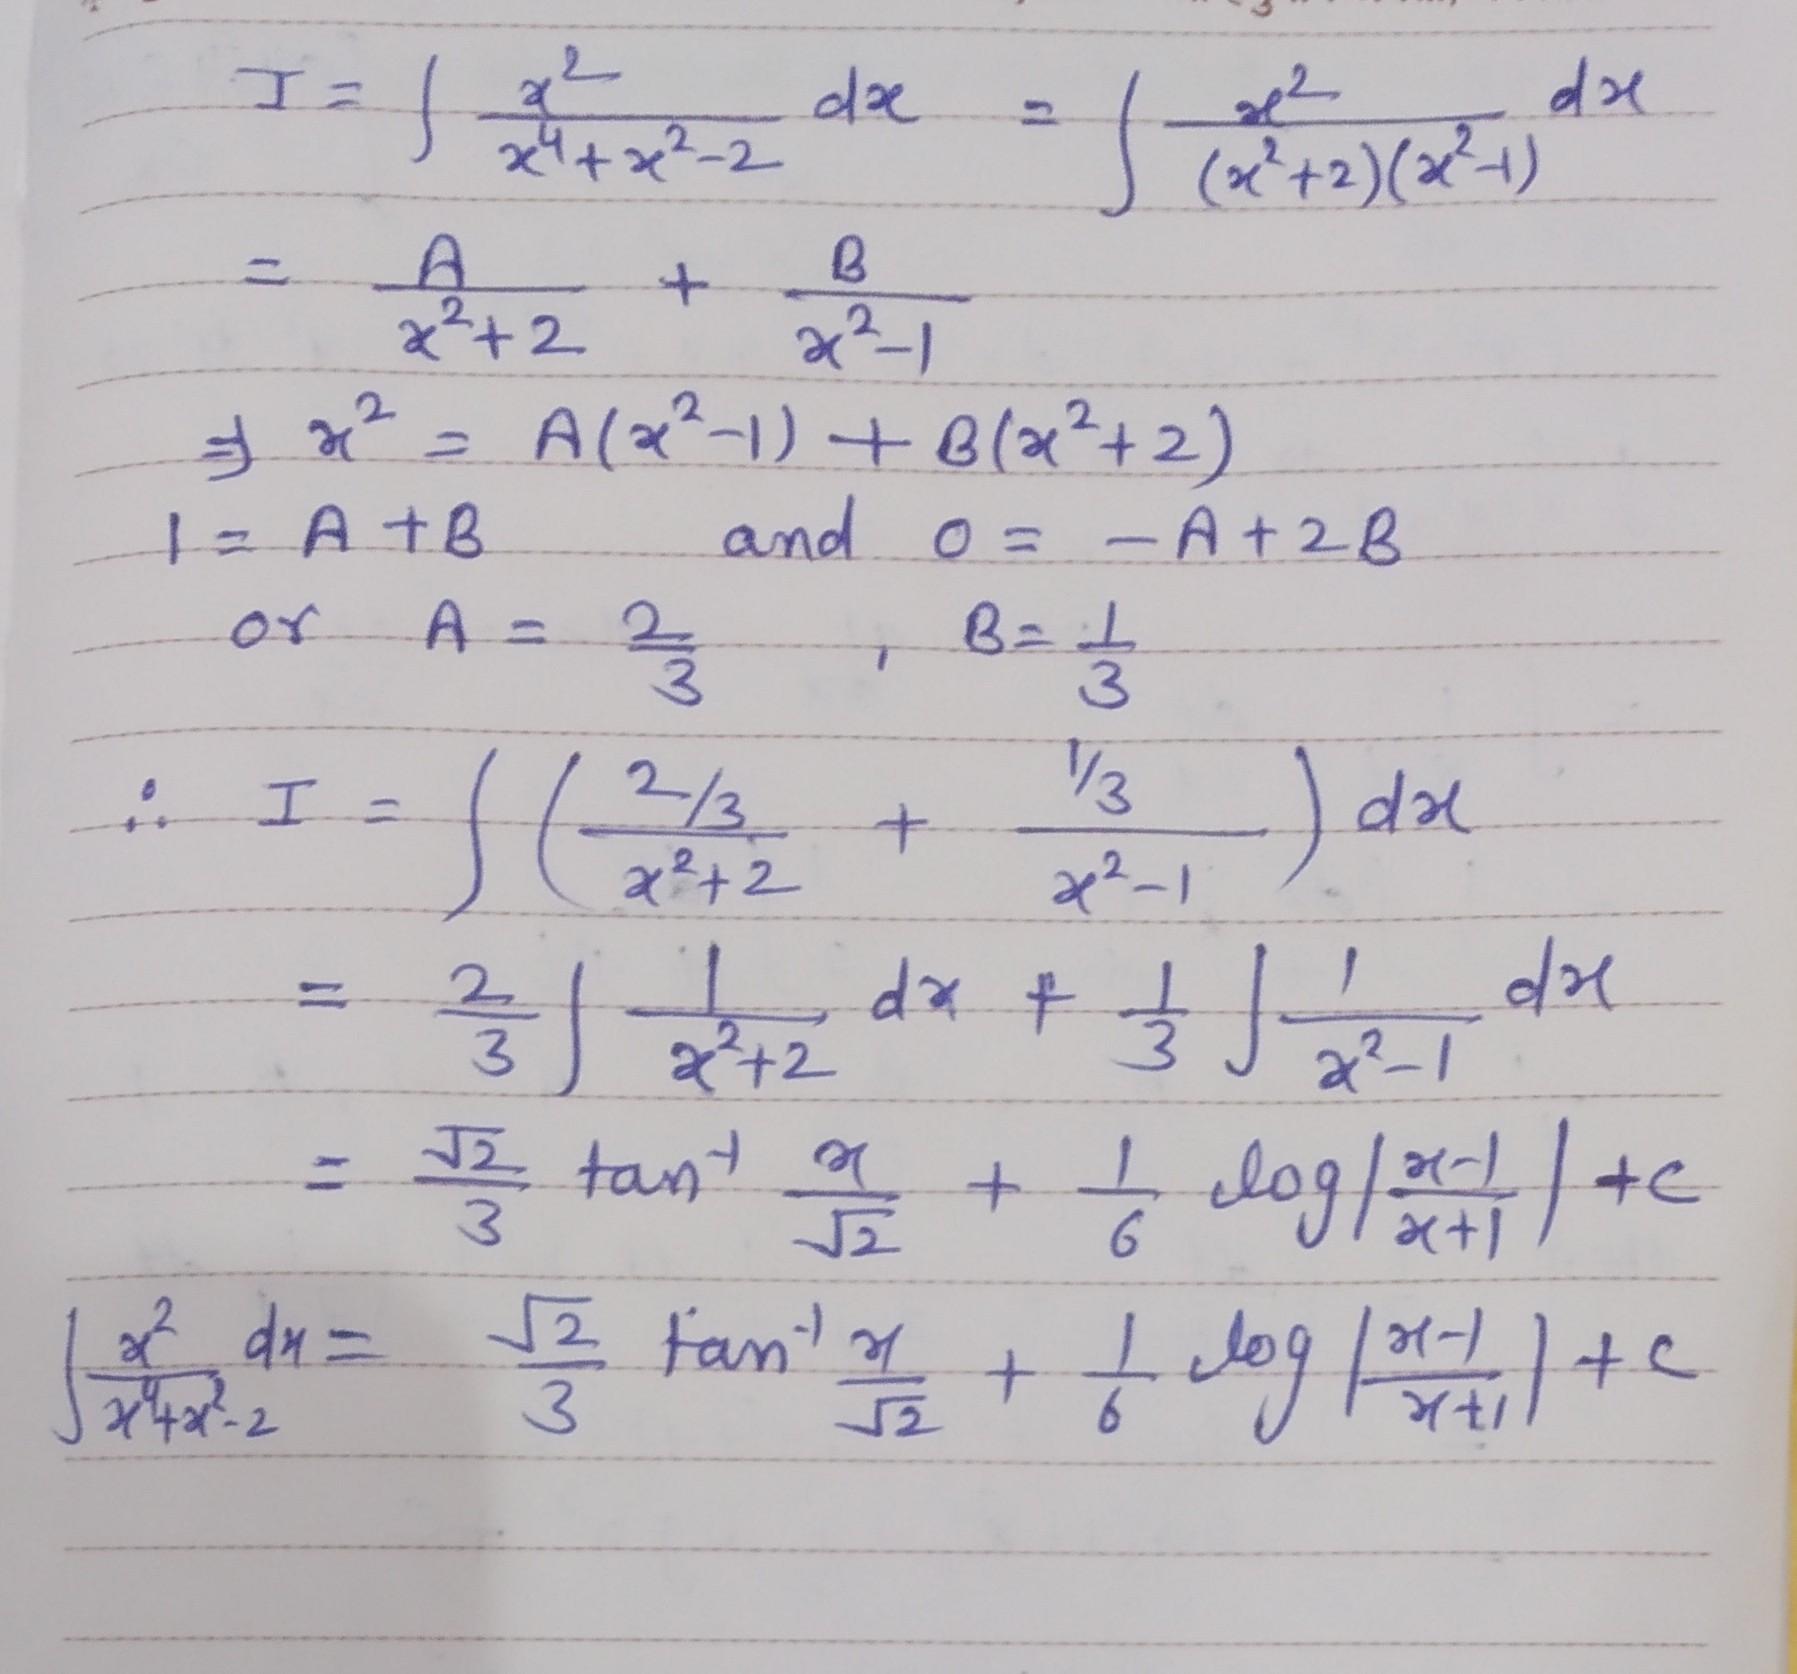 I = ∫ x²/(x⁴+x²-2) dx = ∫ x²/((x²+2)(x²-1)) dx
= A/(x²+2) + B/(x²-1)
⇒ x² = A(x²-1) + B(x²+2)
1 = A + B and 0 = -A + 2B
or A = 2/3 , B = 1/3
∴ I = ∫ ( (2/3)/(x²+2) + (1/3)/(x²-1) ) dx
= 2/3 ∫ 1/(x²+2) dx + 1/3 ∫ 1/(x²-1) dx
= √2/3 tan⁻¹ x/√2 + 1/6 log |(x-1)/(x+1)| + c
∫ x²/(x⁴+x²-2) dx = √2/3 tan⁻¹ x/√2 + 1/6 log |(x-1)/(x+1)| + c